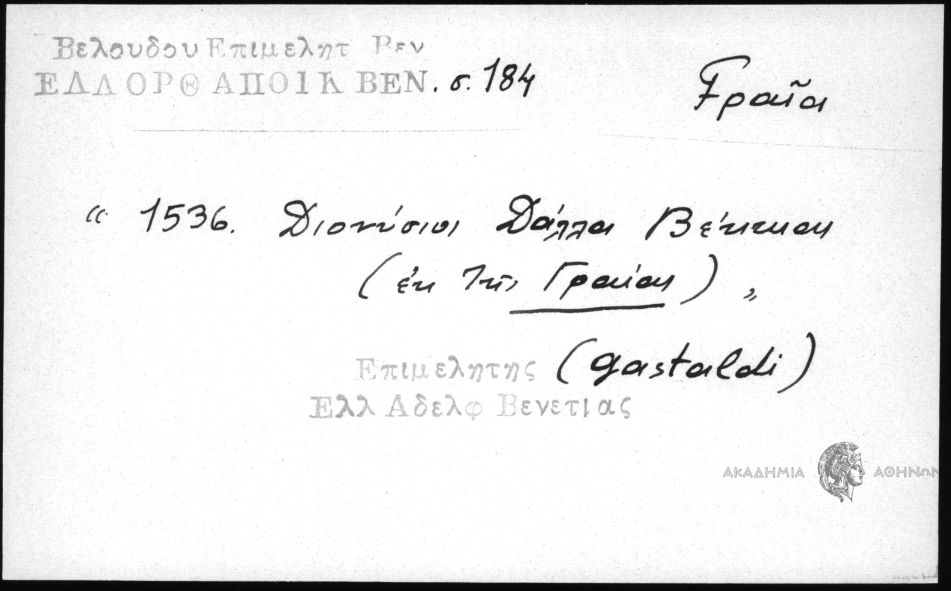 Βελουδου Επιμελητ Βεν
ΕΛΛ ΟΡΘ ΑΠΟΙΚ ΒΕΝ. σ. 184
Γραῖα
“ 1536. Διονύσιοι Δάλλα Βέκκιαι
(ἐκ τῆς Γραίας) „
Επιμελητης (gastaldi)
Ελλ Αδελφ Βενετιας
ΑΚΑΔΗΜΙΑ ΑΘΗΝΩΝ